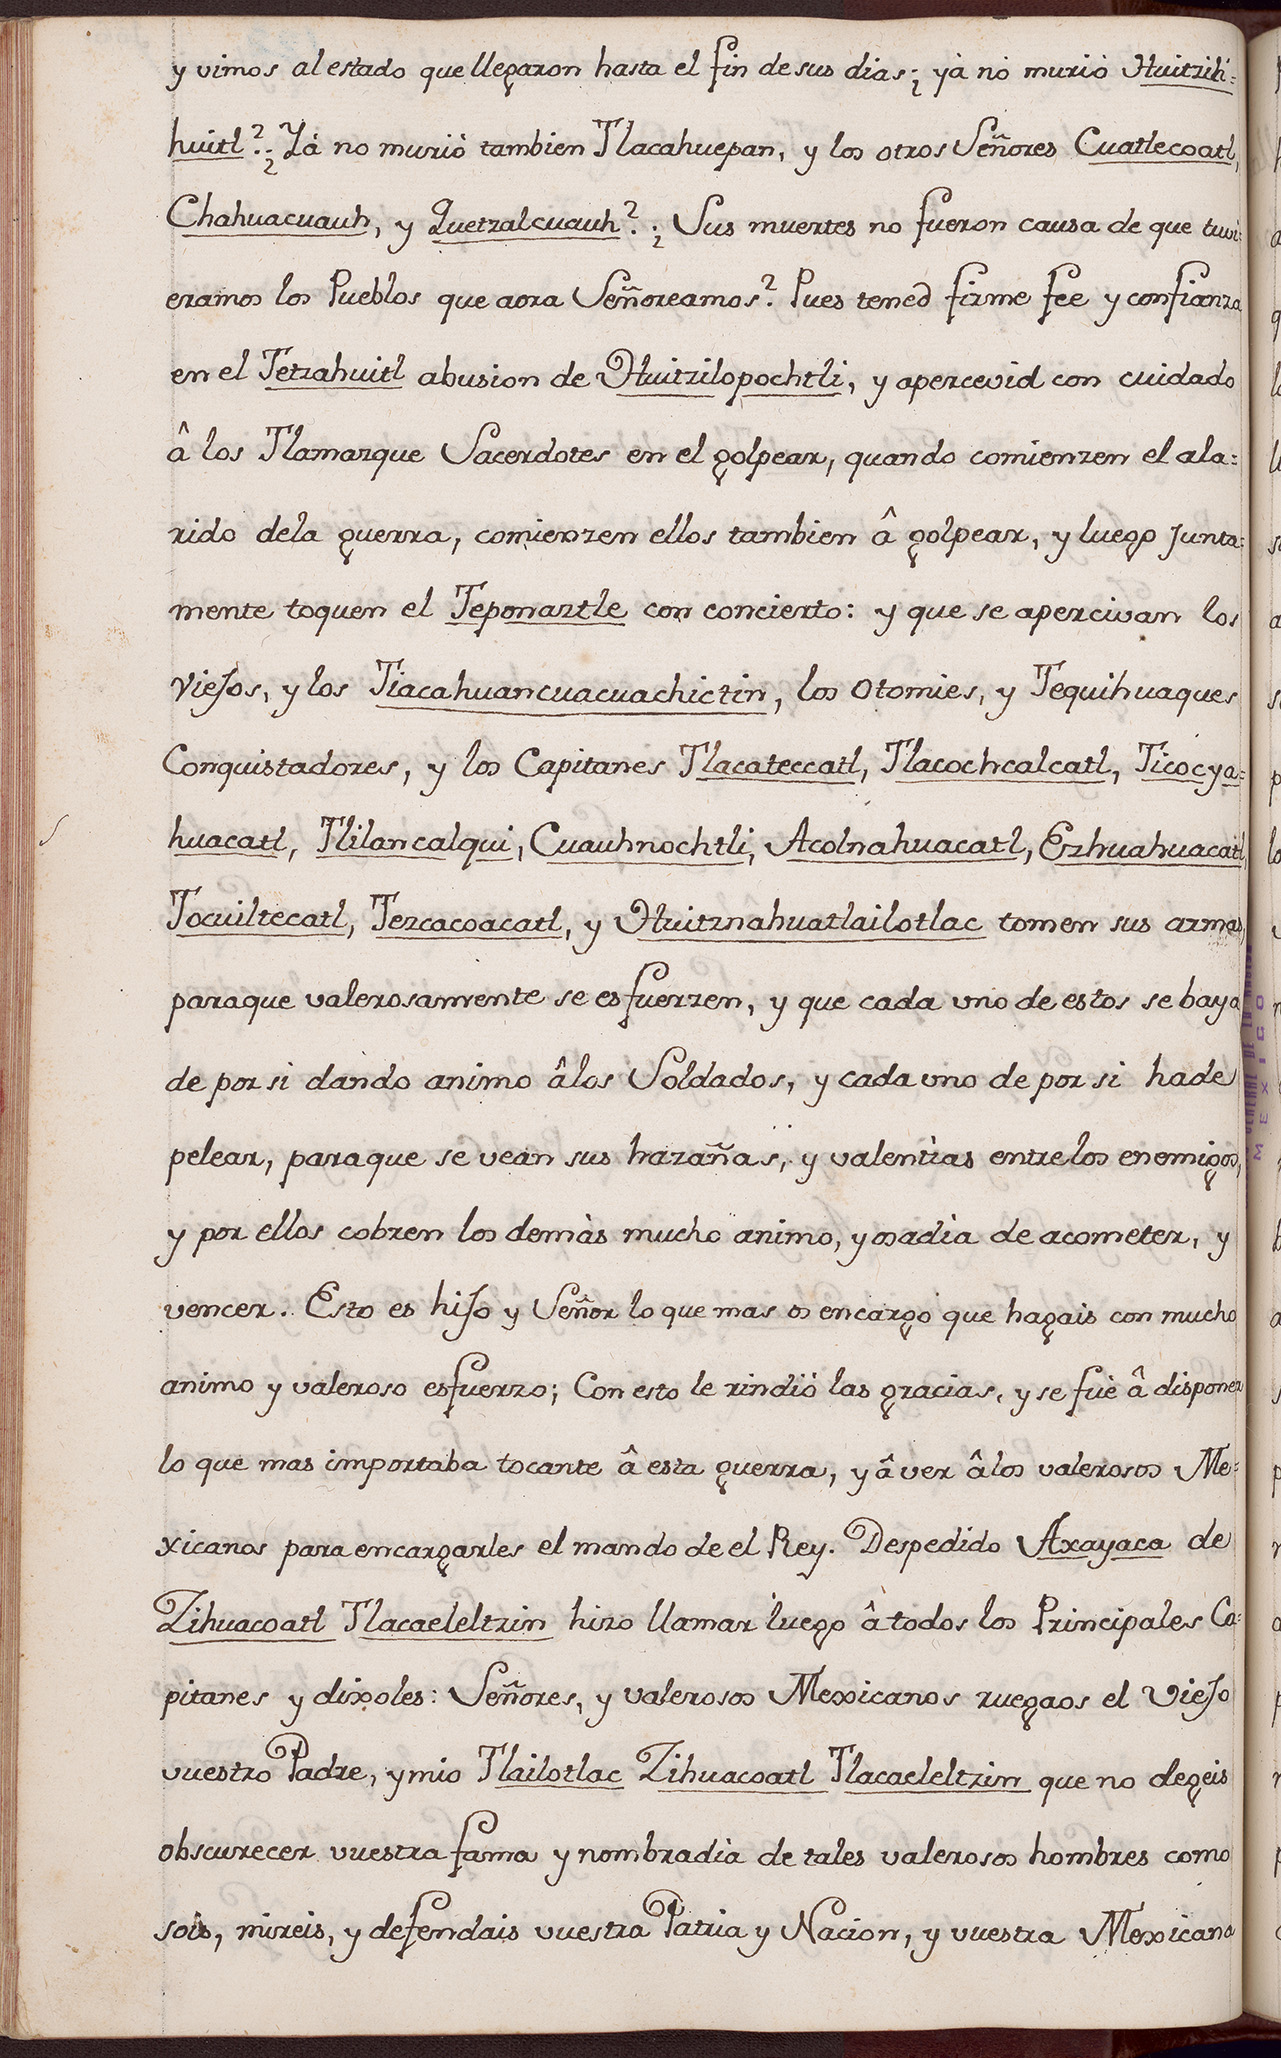 y vimos al estado que llegaron hasta el fin de sus dias; ¿yà no muriò Huitzili=
huitl? ¿Yà no muriò tambien Tlacahuepan, y los otros Señores Cuatlecoatl,
Chahuacuauh, y Quetzalcuauh? ¿Sus muertes no fueron causa de que tuvi=
eramos los Pueblos que aora Señoreamos? Pues tened firme fee y confianza
en el Tetzahuitl abusion de Huitzilopochtli, y apercevid con cuidado
â los Tlamazque Sacerdotes en el golpear, quando comienzen el ala=
rido dela guerra, comienzen ellos tambien â golpear, y luego junta=
mente toquen el Teponaztle con concierto: y que se apercivan los
Viejos, y los Tiacahuancuacuachictin, los Otomies, y Tequihuaques
Conquistadores, y los Capitanes Tlacateccatl, Tlacochcalcatl, Ticocya=
huacatl, Tlilancalqui, Cuauhnochtli, Acolnahuacatl, Ezhuahuacatl,
Tocuiltecatl, Tezcacoacatl, y Huitznahuatlailotlac tomen sus armas,
paraque valerosamente se esfuerzen, y que cada uno de estos se baya
de por si dando animo âlos Soldados, y cada uno de por si hade
pelear, paraque se vean sus hazañas, y valentìas entre los enemigos,
y por ellos cobren los demàs mucho animo, y osadìa de acometer, y
vencer. Esto es hijo y Señor lo que mas os encargo que hagais con mucho
animo y valeroso esfuerzo; Con esto le rindiò las gracias, y se fuè â disponer
lo que mas importaba tocante â esta guerra, y â ver âlos valerosos Me=
xicanos para encargarles el mando de el Rey. Despedido Axayaca de
Zihuacoatl Tlacaeleltzin hizo llamar luego â todos los Principales Ca=
pitanes y dixoles: Señores, y valerosos Mexicanos ruegaos el Viejo
vuestro Padre, y mio Tlailotlac Zihuacoatl Tlacaeleltzin que no degeis
obscurecer vuestra fama y nombradìa de tales valerosos hombres como
sois, mireis, y defendais vuestra Patria y Nacion, y vuestra Mexicana
MEXICO